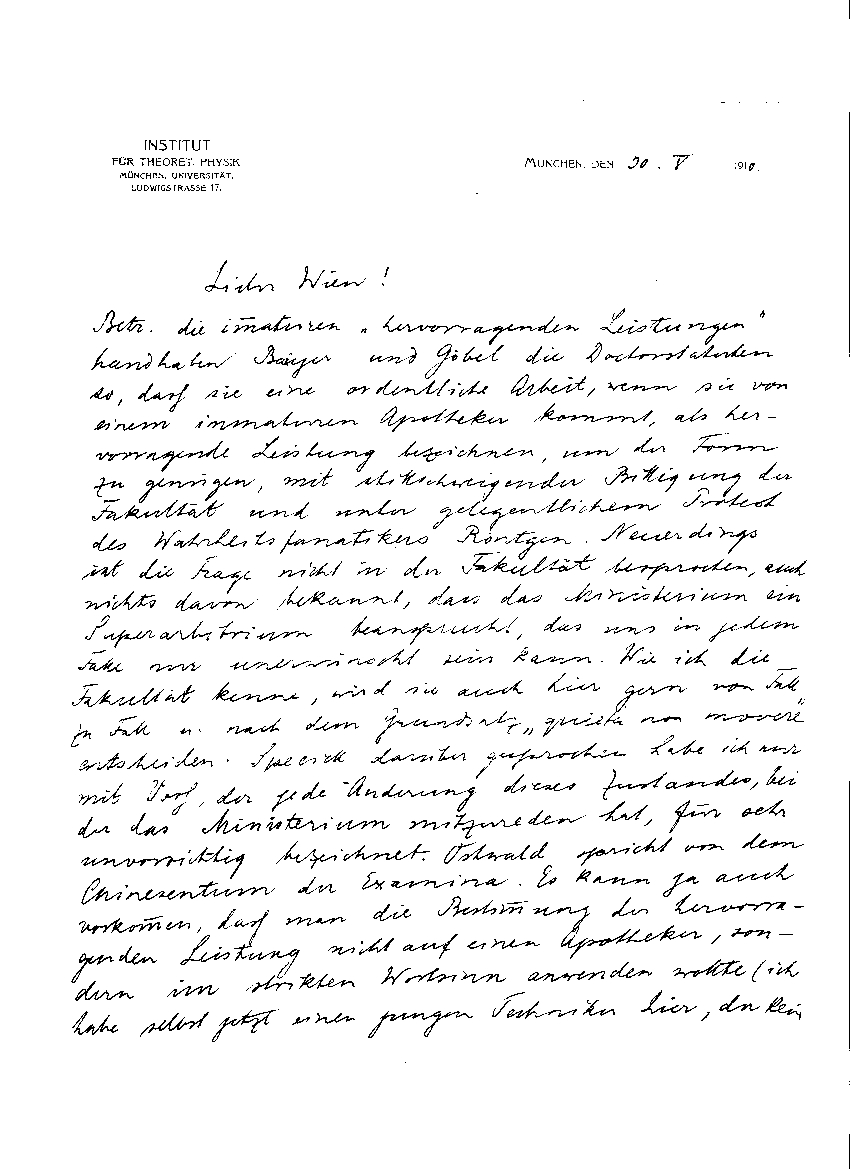 INSTITUT
FÜR THEORET. PHYSIK
MÜNCHEN, UNIVERSITÄT,
LUDWIGSTRASSE 17.
MÜNCHEN, DEN 30. V 1910.
Lieber Wien!
Betr. die im̄aturen „hervorragenden Leistungen"
handhaben Baeyer und Göbel die Doctorstatuten
so, dass sie eine ordentliche Arbeit, wenn sie von
einem immaturen Apotheker kommt, als her-
vorragende Leistung bezeichnen, um der Form
zu genügen, mit stillschweigender Billigung der
Fakultät und unter gelegentlichem Protest
des Wahrheitsfanatikers Röntgen. Neuerdings
ist die Frage nicht in der Fakultät besprochen, auch
nichts davon bekannt, dass das Ministerium ein
Superarbitrium beansprucht, das uns in jedem
Falle nur unerwünscht sein kann. Wie ich die
Fakultät kenne, wird sie auch hier gern von Fall
zu Fall u. nach dem Grundsatz „quieta non movere"
entscheiden. Speciell darüber gesprochen habe ich nur
mit Voss, der jede Änderung dieses Zustandes, bei
der das Ministerium mitzureden hat, für sehr
unvorsichtig bezeichnet. Ostwald spricht von dem
Chinesentum der Examina. Es kann ja auch
vorkom̄en, dass man die Bestim̄ung der hervorra-
genden Leistung nicht auf einen Apotheker, son-
dern im strikten Wortsinn anwenden wollte (ich
habe selbst jetzt einen jungen Techniker hier, der kein